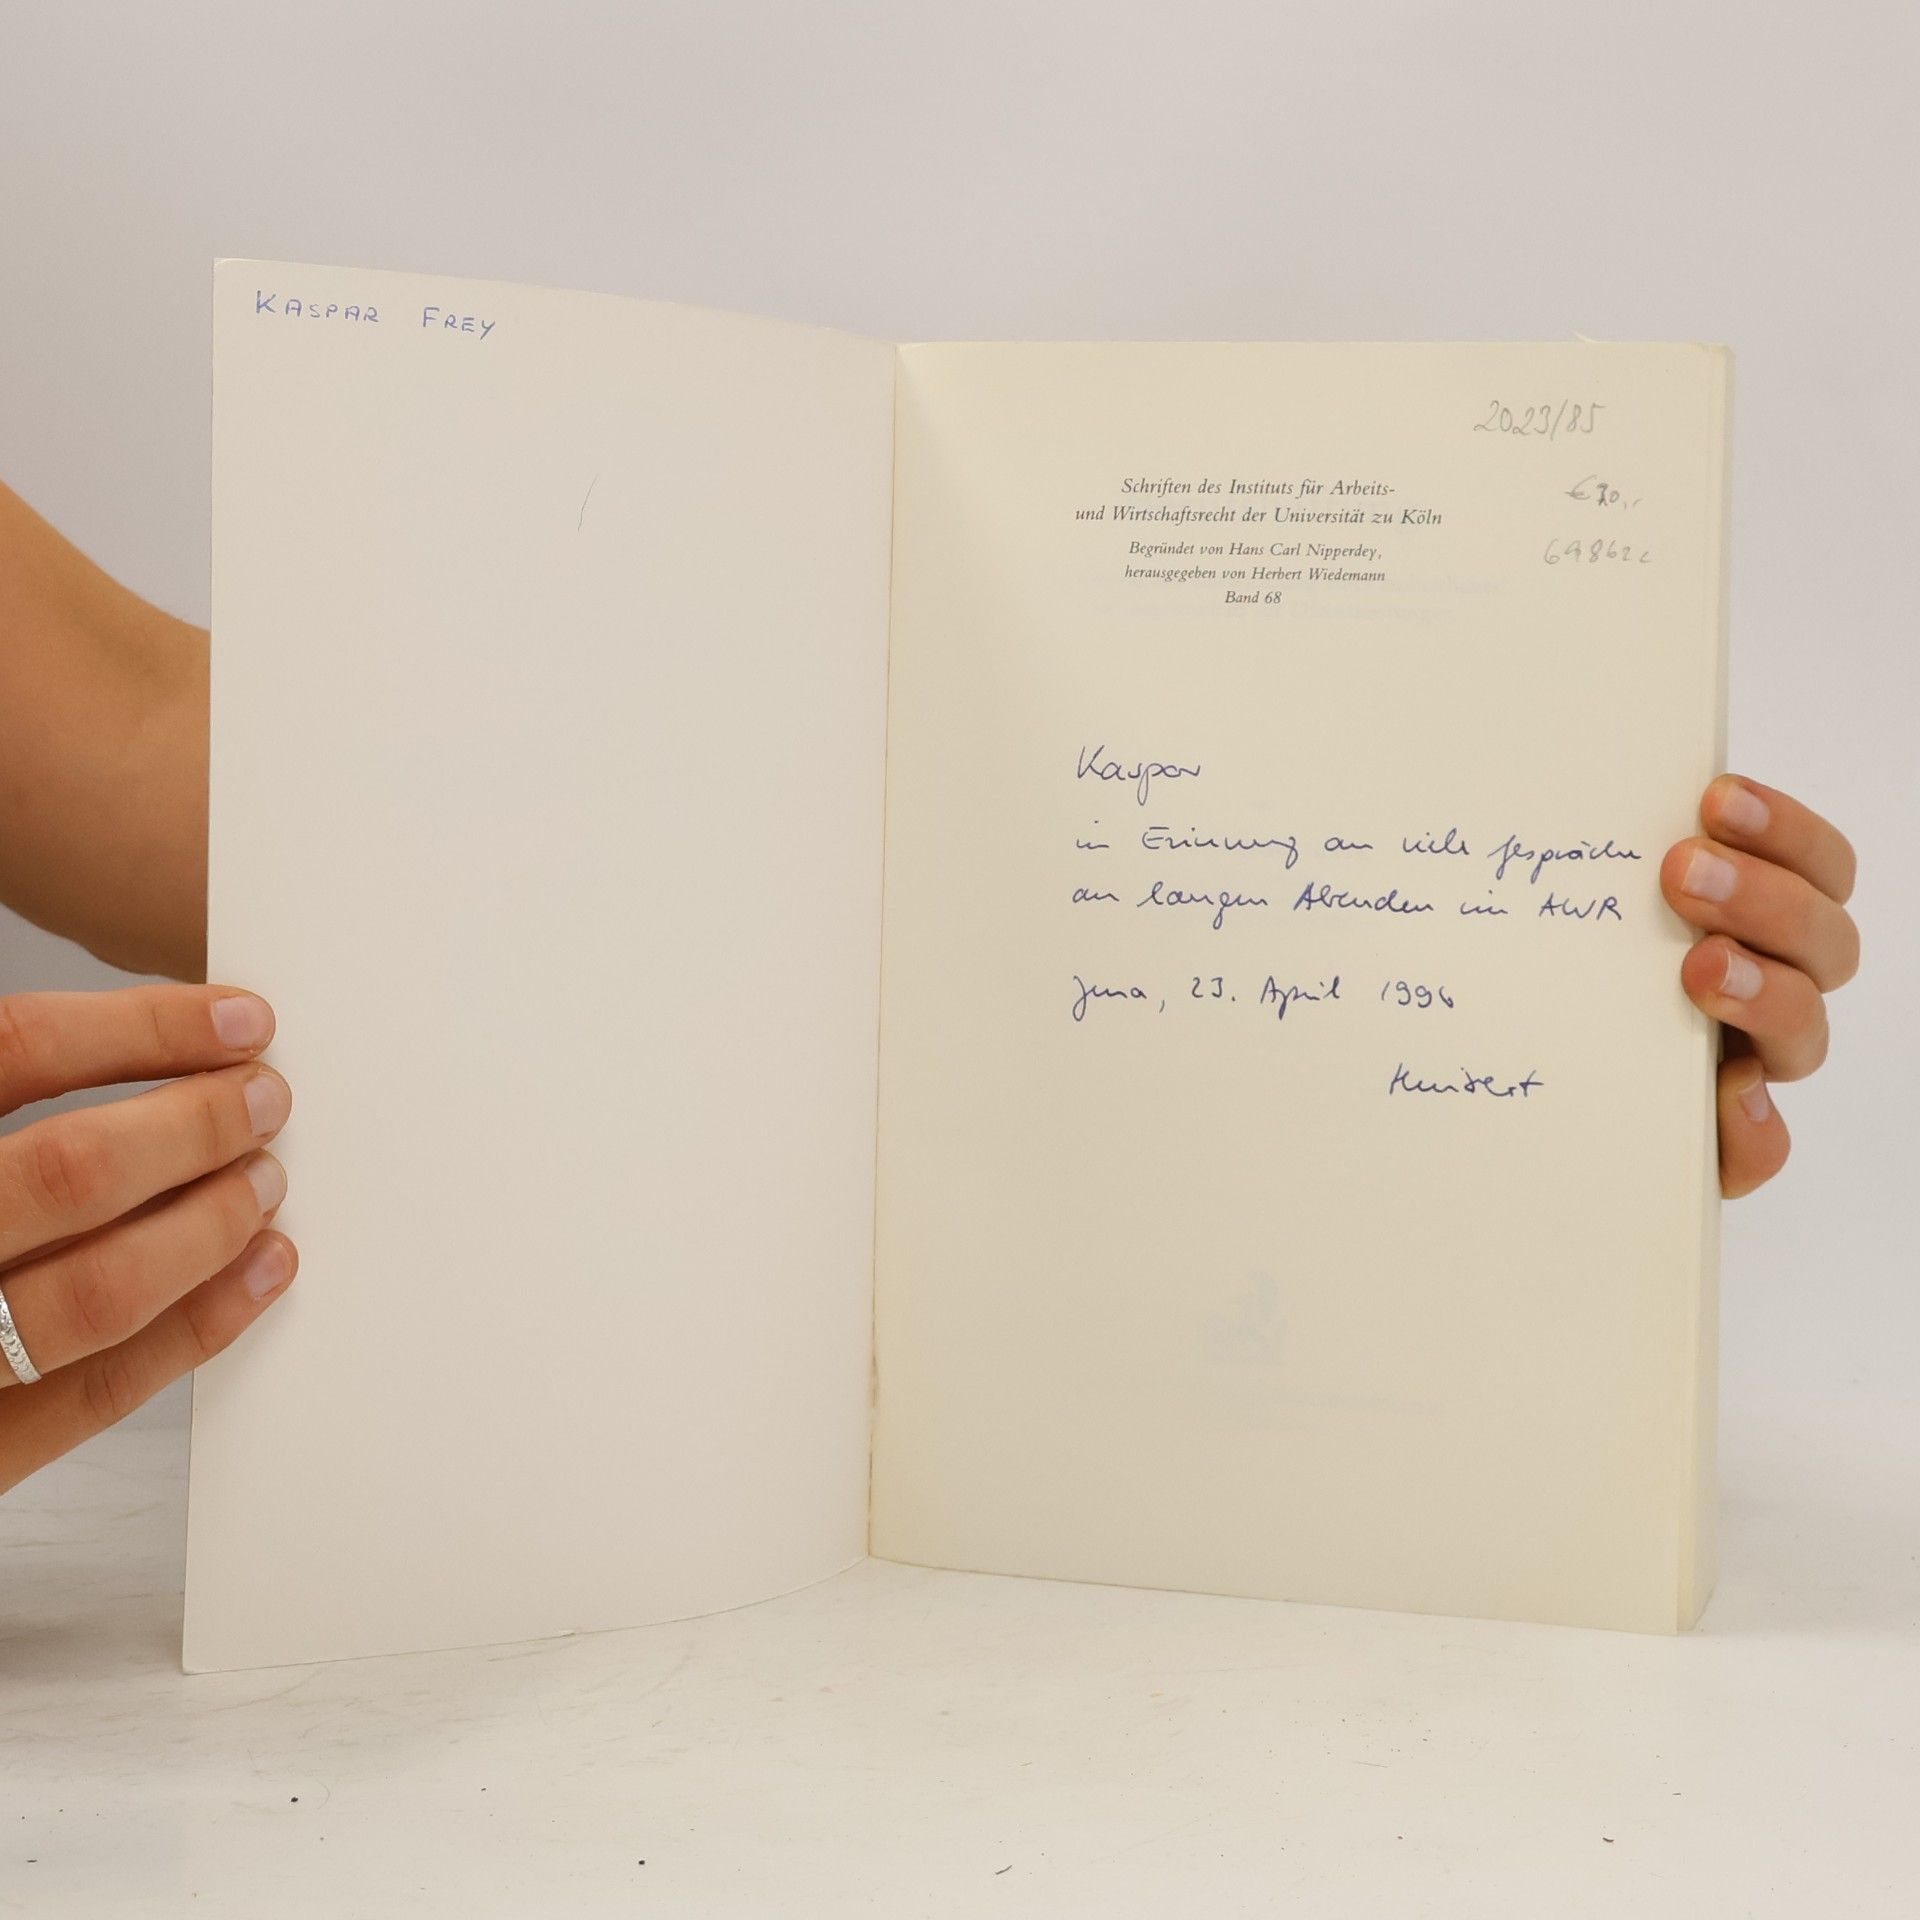 KASPAR FREY
2023/85
Schriften des Instituts für Arbeits-
und Wirtschaftsrecht der Universität zu Köln
Begründet von Hans Carl Nipperdey,
herausgegeben von Herbert Wiedemann
Band 68
Kaspar
in Erinnerung an viele Gespräche
an langen Abenden im AWR
Jena, 23. April 1996